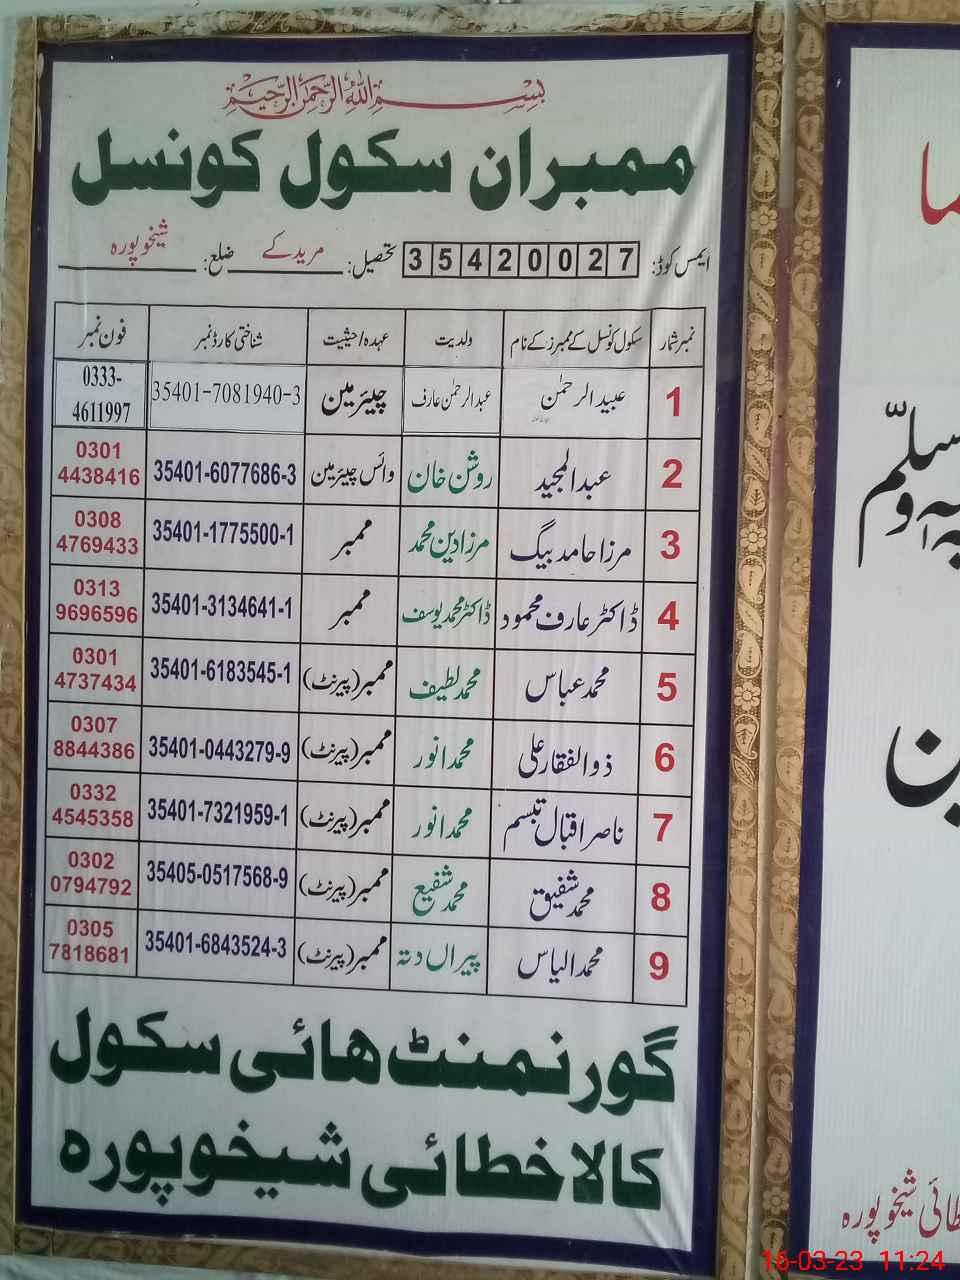 بِسْمِ اللهِ الرَّحْمٰنِ الرَّحِيْمِ
ممبران سکول کونسل
ایمس کوڈ: 35420027 تحصیل: مریدکے ضلع: شیخوپورہ
نمبر شمار سکول کونسل کے ممبرز کے نام ولدیت عہدہ/حیثیت شناختی کارڈ نمبر فون نمبر
1 عبید الرحمٰن عبدالرحمٰن عارف چیئرمین 35401-7081940-3 0333-4611997
2 عبدالمجید روشن خان وائس چیئرمین 35401-6077686-3 0301 4438416
3 مرزا حامد بیگ مرزا دین محمد ممبر 35401-1775500-1 0308 4769433
4 ڈاکٹر عارف محمود ڈاکٹر محمد یوسف ممبر 35401-3134641-1 0313 9696596
5 محمد عباس محمد لطیف ممبر (پیرنٹ) 35401-6183545-1 0301 4737434
6 ذوالفقار علی محمد انور ممبر (پیرنٹ) 35401-0443279-9 0307 8844386
7 ناصر اقبال تبسم محمد انور ممبر (پیرنٹ) 35401-7321959-1 0332 4545358
8 محمد شفیق محمد شفیع ممبر (پیرنٹ) 35405-0517568-9 0302 0794792
9 محمد الیاس پیراں دتہ ممبر (پیرنٹ) 35401-6843524-3 0305 7818681
گورنمنٹ ہائی سکول
کالا خطائی شیخوپورہ
وسلّم
شیخوپورہ
16-03-23 11:24